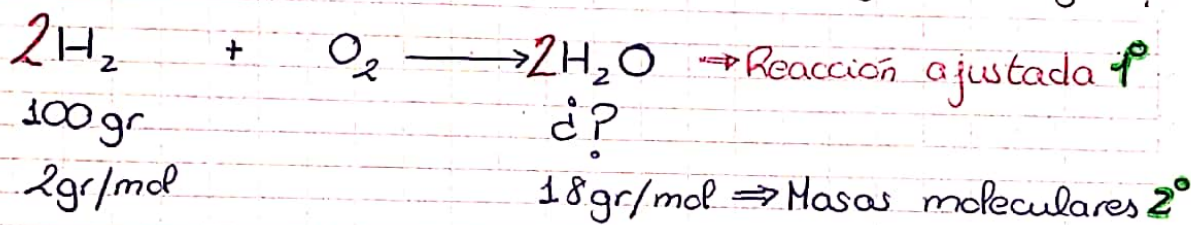 2H₂ + O₂ ⟶ 2H₂O ⇒ Reacción ajustada 1º
100gr ¿?
2gr/mol 18gr/mol ⇒ Masas moleculares 2º